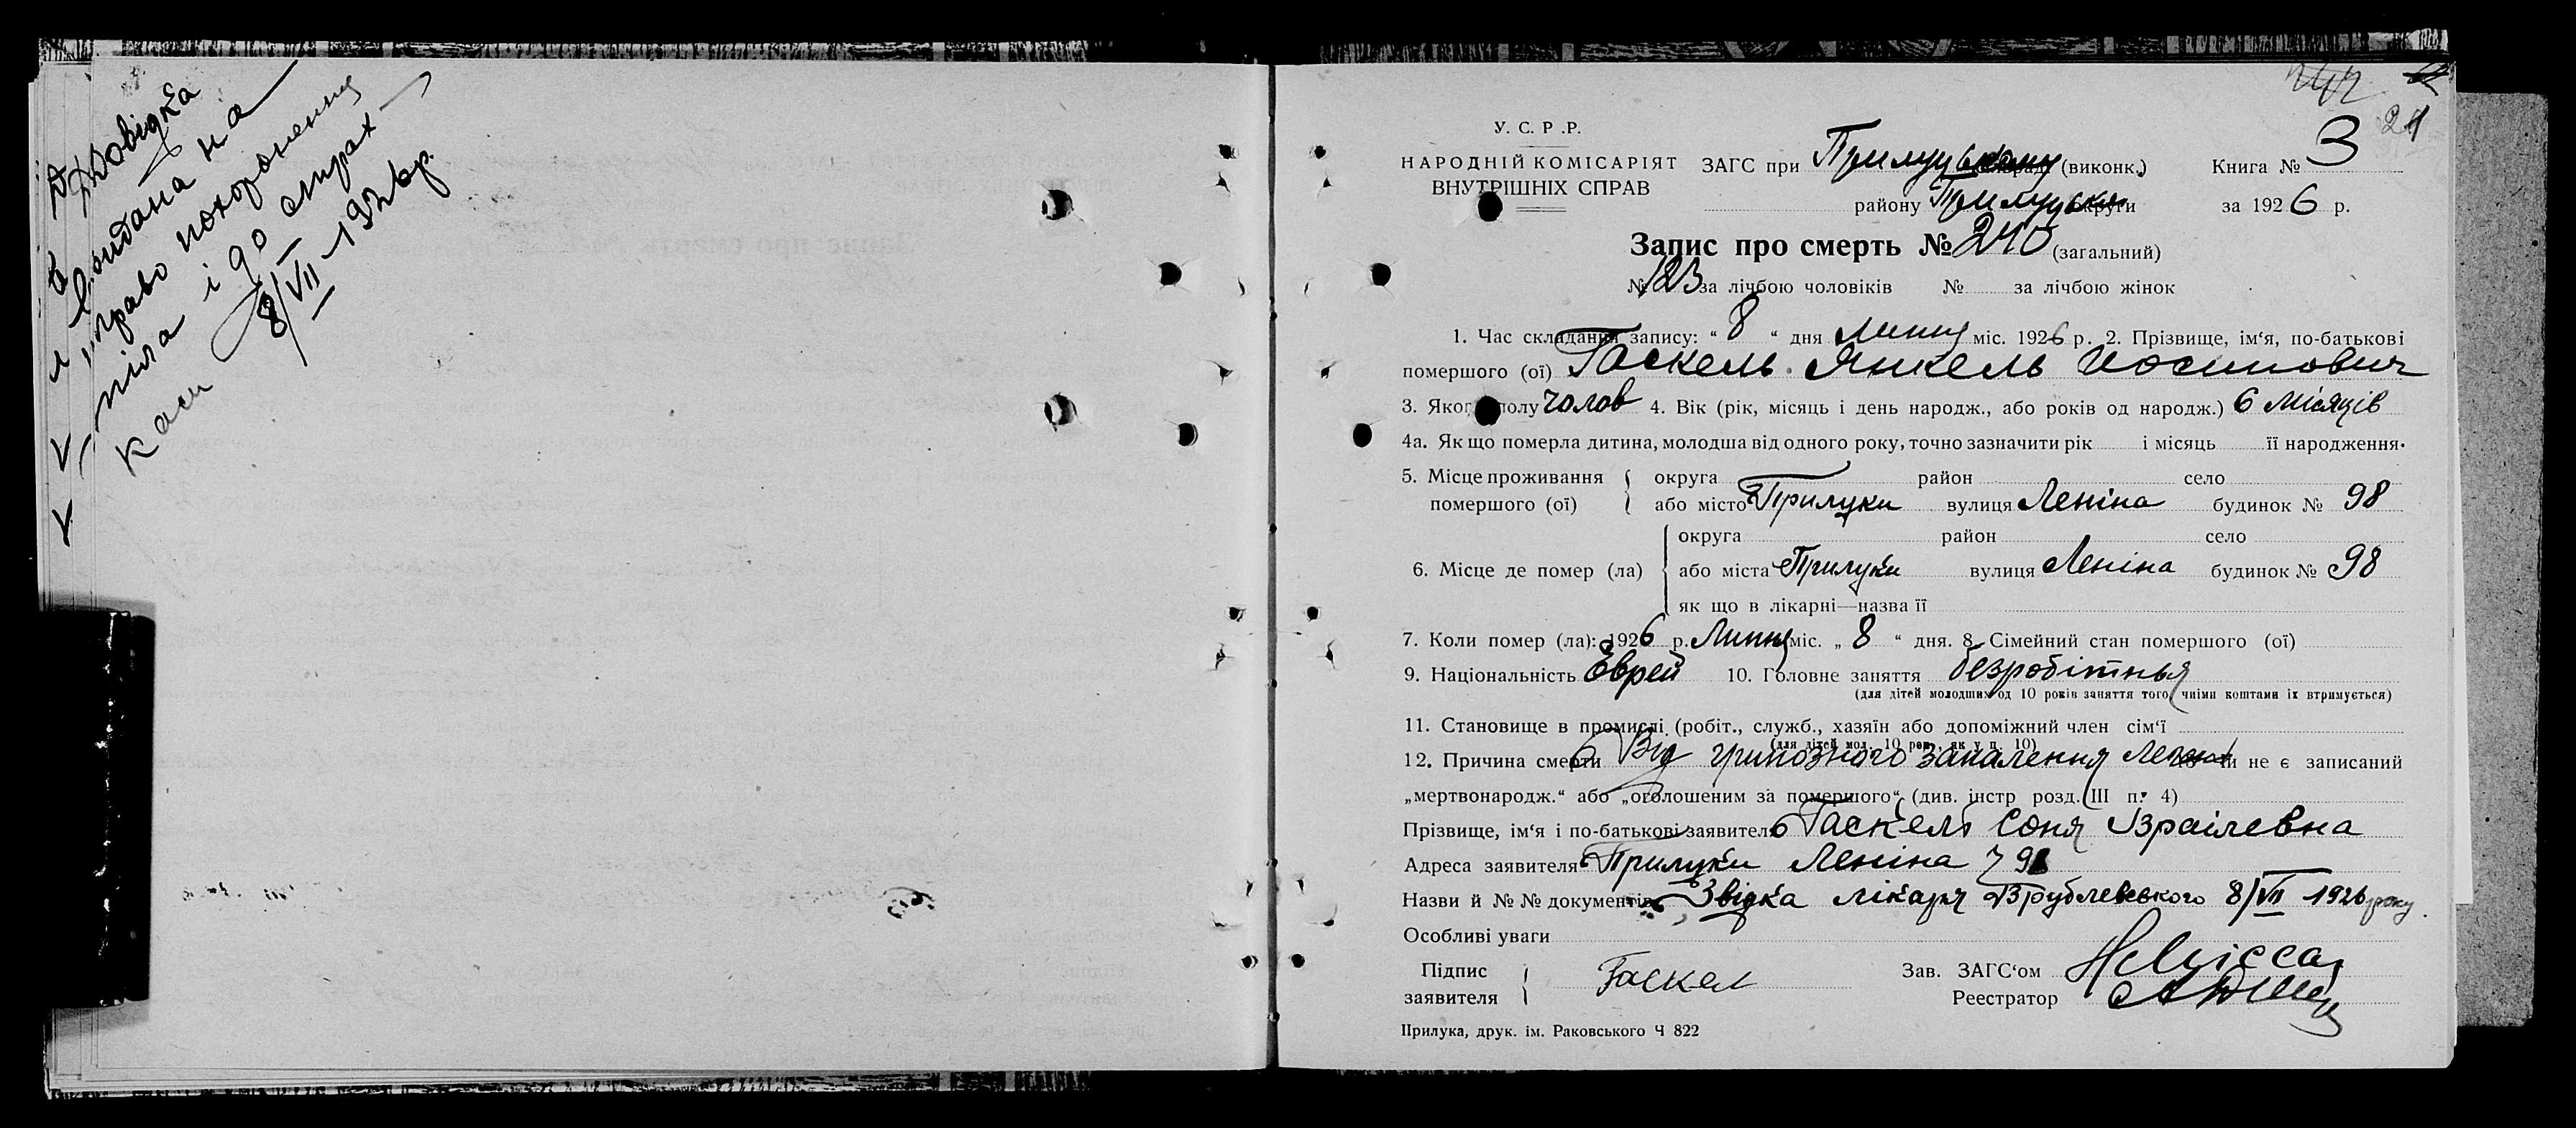 Довідка
видана на
право похоронення
тіла і до страх
каси
8/VII-1926р.
24
У. С. Р .Р.
НАРОДНІЙ КОМІСАРІЯТ
ВНУТРІШНІХ СПРАВ
ЗАГС при Прилуцькому (виконк.)
району Прилуцьки округи
Книга № 3
за 1926 р.
Запис про смерть № 240 (загальний)
№ 123 за лічбою чоловіків № за лічбою жінок
1. Час складання запису: “ 8 “ дня Липня міс. 1926 р. 2. Прізвище, ім‘я, по-батькові
помершого (ої) Гаскель Янкель Иосипович
3. Якого полу чолов 4. Вік (рік, місяць і день народж., або років од народж.) 6 місяців
4а. Як що померла дитина, молодша від одного року, точно зазначити рік і місяць її народження.
5. Місце проживання помершого (ої)
округа район село
або місто Прилуки вулиця Леніна будинок № 98
6. Місце де помер (ла)
округа район село
або міста Прилуки вулиця Леніна будинок № 98
як що в лікарні—назва її
7. Коли помер (ла): 1926 р. Липня міс. „ 8 “ дня. 8. Сімейний стан помершого (ої)
9. Національність Єврей 10. Головне заняття безробітня
(для дітей молодших од 10 років заняття того, чиїми коштами їх втримується)
11. Становище в промислі (робіт., служб., хазяїн або допоміжний член сім‘ї
(для дітей мол. 10 рок., як у п. 10)
12. Причина смерти Від грипозного запалення Леген чи не є записаний
„мертвонародж.“ або „оголошеним за помершого“ (див. інстр розд. III п. 4)
Прізвище, ім‘я і по-батькові заявителя Гаскель Соня Ізраілевна
Адреса заявителя Прилуки Леніна 98
Назви й №№ документів Звідка лікаря Врублевського 8/VII 1926 року.
Особливі уваги
Підпис заявителя Гаскел
Зав. ЗАГС‘ом
Реестратор
Прилука, друк. ім. Раковського Ч 822